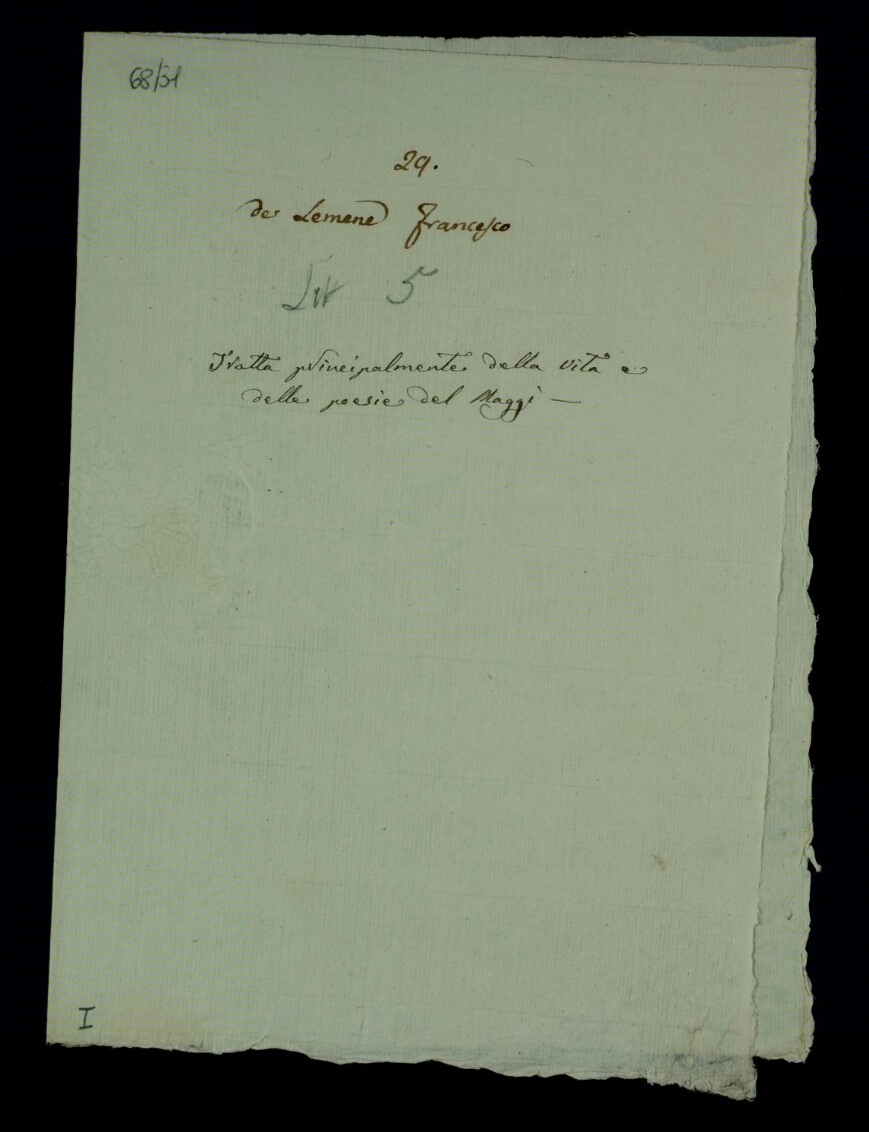 68/31
29.
de Lemene Francesco
Lit 5
Tratta principalmente della vita e
delle poesie del Maggi —
I